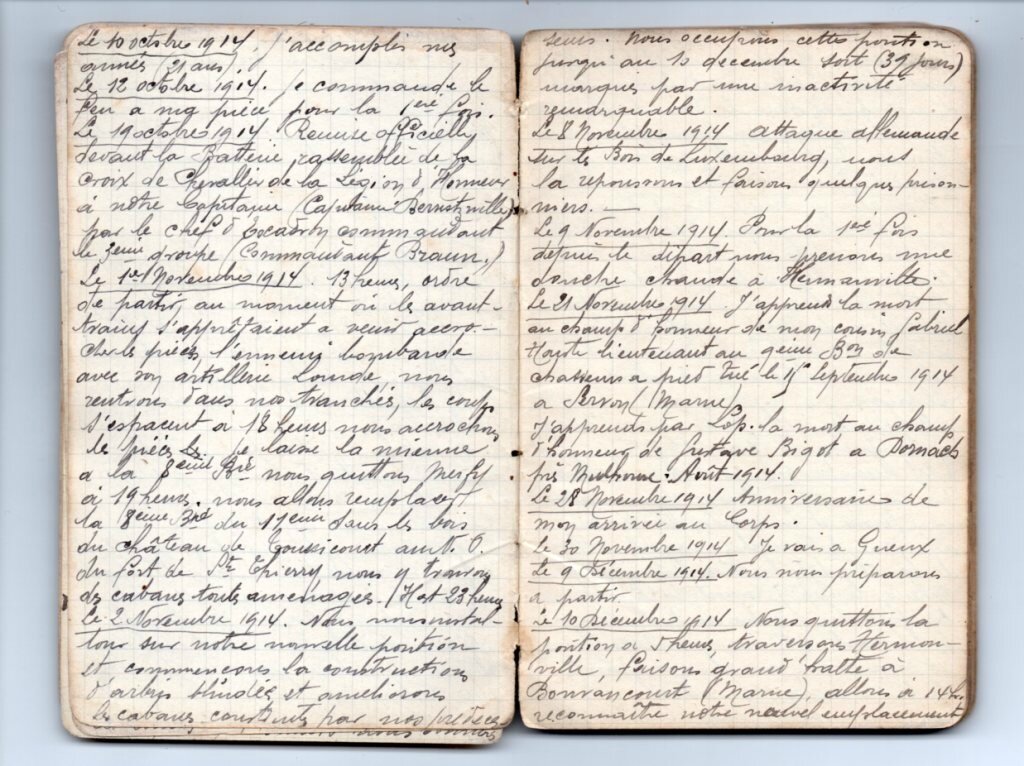 Le 10 octobre 1914. J'accomplis mes
années (21 ans).
Le 12 octobre 1914. Je commande le
feu a ma pièce pour la 1ère fois.
Le 19 octobre 1914 Remise officielle
devant la Batterie rassemblée de la
croix de Chevallier de la Légion d'Honneur
à notre Capitaine (Capitaine)
par le chef d'Escadron commandant
le 3ème groupe (Commandant Braun.)
Le 1er Novembre 1914. 13 heures, ordre
de partir, au moment où les avant-
trains s'apprêtaient a venir accro-
cher les pièces, l'ennemi bombarde
avec son artillerie lourde nous
rentrons dans nos tranchés, les coups
s'espacent à 18 heures nous accrochons
les pièces je laisse la mienne
a la 8ème Bie nous quittons Merfy
à 19 heures. nous allons remplacer
la 8ème Bie du 17ème dans les bois
du château de Toussicourt au N.O.
du fort de St Thierry, nous y trouvons
des cabanes toutes aménagés. Il est 23 heures
Le 2 Novembre 1914. Nous nous instal-
lons sur notre nouvelle position
et commençons la construction
d'arbris blindés et améliorons
les cabanes construites par nos prédéces
seurs. Nous occuprons cette position
jusqu'au 10 decembre soit (39 jours)
marqués par une inactivité
remarquable.
Le 8 Novembre 1914 attaque allemande
sur le Bois de Luxembourg, nous
la repoussons et faisons quelques prison-
niers. —
Le 9 Novembre 1914. Pour la 1ère fois
depuis le départ nous prenons une
douche chaude à Hermonville.
Le 21 Novembre 1914. J'apprend la mort
au champ d'honneur de mon cousin Gabriel
lieutenant au 9ème Bon de
chasseurs a pied tué le 15 Septembre 1914
a Servon (Marne)
J'apprends par la mort au champ
d'honneur de Gustave Bigot a Dornach
près Mulhouse. Août 1914.
Le 28 Novembre 1914 Anniversaire de
mon arrivée au Corps.
Le 30 Novembre 1914 Je vais a Gueux
Le 9 Décembre 1914. Nous nous préparons
a partir
Le 10 Décembre 1914 Nous quittons la
position a 5 heures, traversons Hermon-
ville, faisons grand'halte à
Bouvancourt (Marne), allons à 14h
reconnaître notre nouvel emplacement